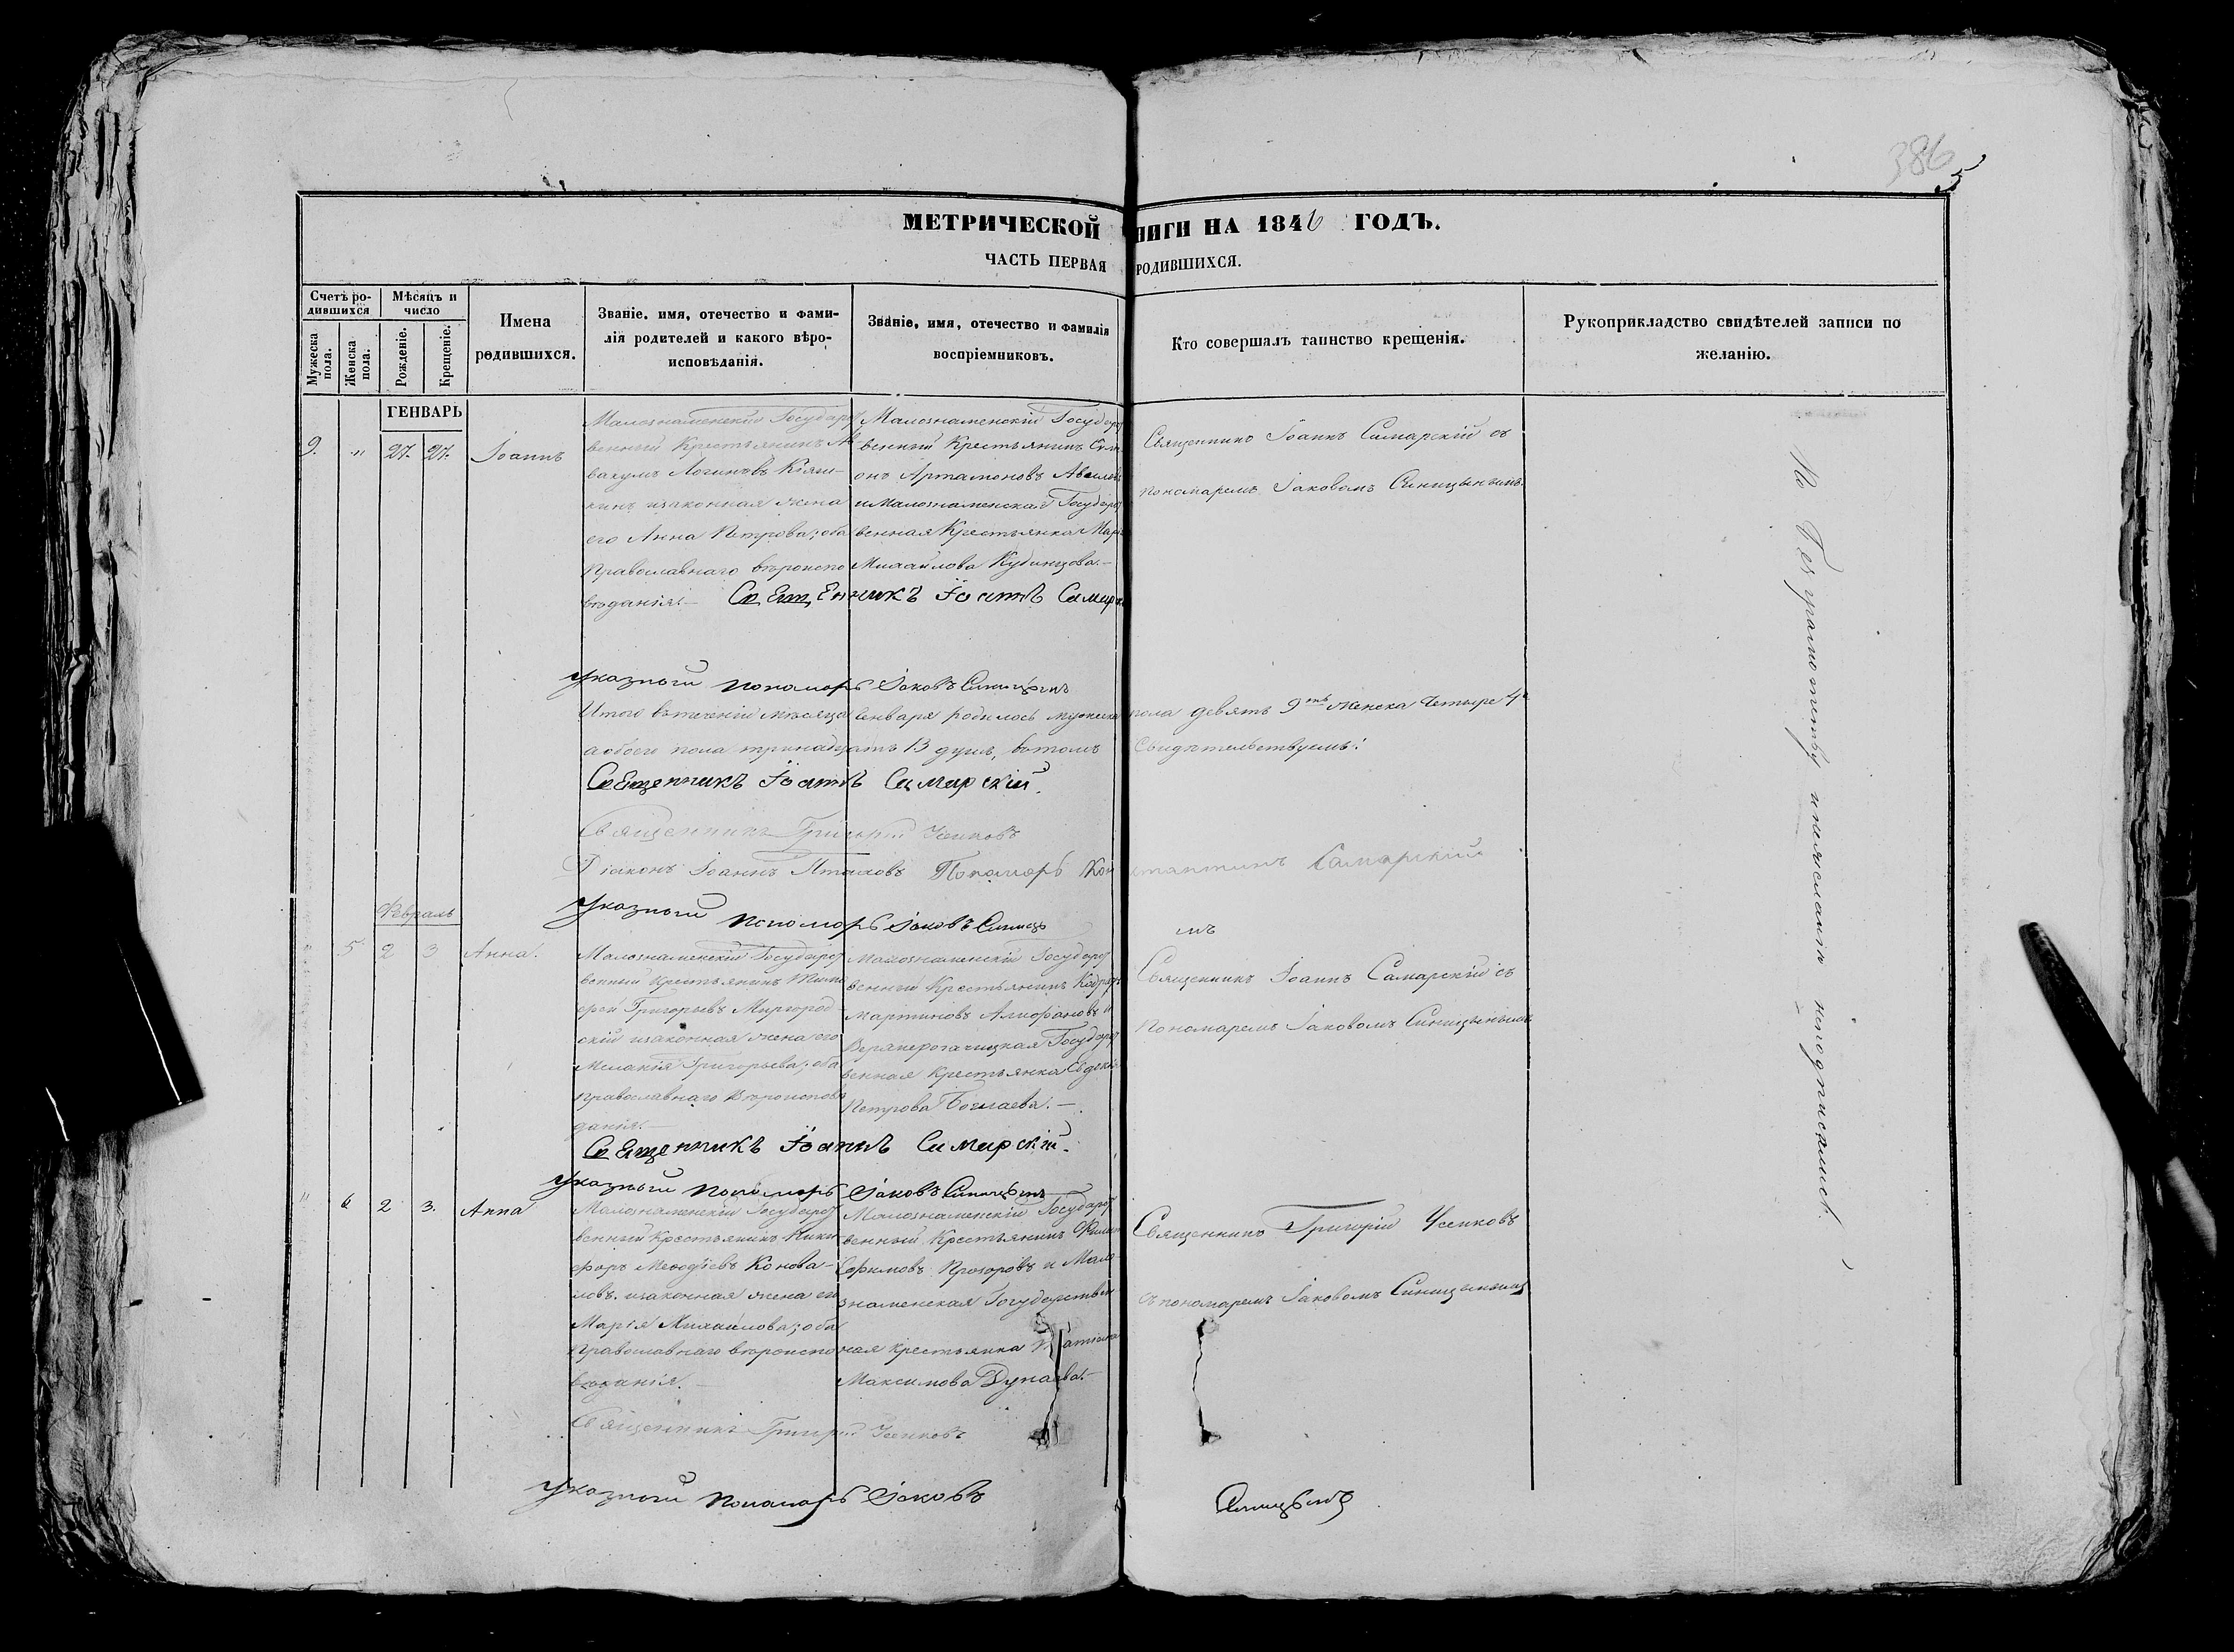 386
5
МЕТРИЧЕСКОЙ КНИГИ НА 1846 ГОДЪ.
ЧАСТЬ ПЕРВАЯ РОДИВШИХСЯ.
Счетъ ро-
дившихся
Мужеска пола.
Женска пола.
Мѣсяцъ и
число
Рожденіе.
Крещеніе.
Имена
родившихся.
Званіе, имя, отечество и фами-
лія родителей и какого вѣро-
исповѣданія.
Званіе, имя, отечество и фамилія
воспріемниковъ.
Кто совершалъ таинство крещенія.
Рукоприкладство свидѣтелей записи по
желанію.
ГЕНВАРЬ
9. " 27. 27. Іоаннъ
Малознаменскій Государст
венный Крестьянинъ Ав
вакумъ Логиновъ
и законная жена
его Анна Петрова; оба
Православнаго вѣроиспо
вѣданія.—
Малознаменскій Государст
венный Крестьянинъ Сим
онъ Артамоновъ
и Малознаменская Государст
венная Крестьянка
Михайлова Кубинцова.—
Священникъ Іоаннъ Самарскій съ
пономаремъ Іаковомъ Синицынымъ.
Священникъ Іоаннъ Самарск
Указный пономарь Іаковъ Синицынъ
Итого въ теченіи мѣсяца Генваря родилось мужеска пола девять 9ть женска четыре 4е
а обоего пола тринадцать 13 душъ, въ томъ Свидѣтельствуемъ:
Священникъ Іоаннъ Самарскій.
Священникъ Григорій Усиковъ
Діаконъ Іоаннъ Пономарь Константинъ Самарскій
Указный пономарь Іаковъ Синицынъ
Февраль
" 5 2 3 Анна.
Малознаменскій Государст
венный Крестьянинъ Тимо
фей Григорьевъ Миргород
скій и законная жена его
Меланія Григорьева; оба
православнаго Вѣроисповѣ
данія.—
Малознаменскій Государст
венный Крестьянинъ
Мартиновъ
Верхнерогачицкая Государст
венная Крестьянка Евдокія
Петрова
Священникъ Іоаннъ Самарскій съ
Пономаремъ Іаковомъ Синицынымъ
Священникъ Іоаннъ Самарскій.
Указный пономарь Іаковъ Синицынъ
" 6 2 3. Анна
Малознаменскій Государст
венный Крестьянинъ Ники
форъ Меѳодіевъ Конова-
ловъ и законная жена его
Марія Михайлова; оба
Православнаго вѣроиспо
вѣданія.
Малознаменскій Государст
венный Крестьянинъ
Ефимовъ Прозоровъ и Мало
знаменская Государствен
ная крестьянка Татіана
Максимова Дунаева.—
Священникъ Григорій Усиковъ
съ пономаремъ Іаковомъ Синицынымъ
Священникъ Григорій Усиковъ
Указный Пономарь Іаковъ Синицынъ
По безграмотству неподписались.